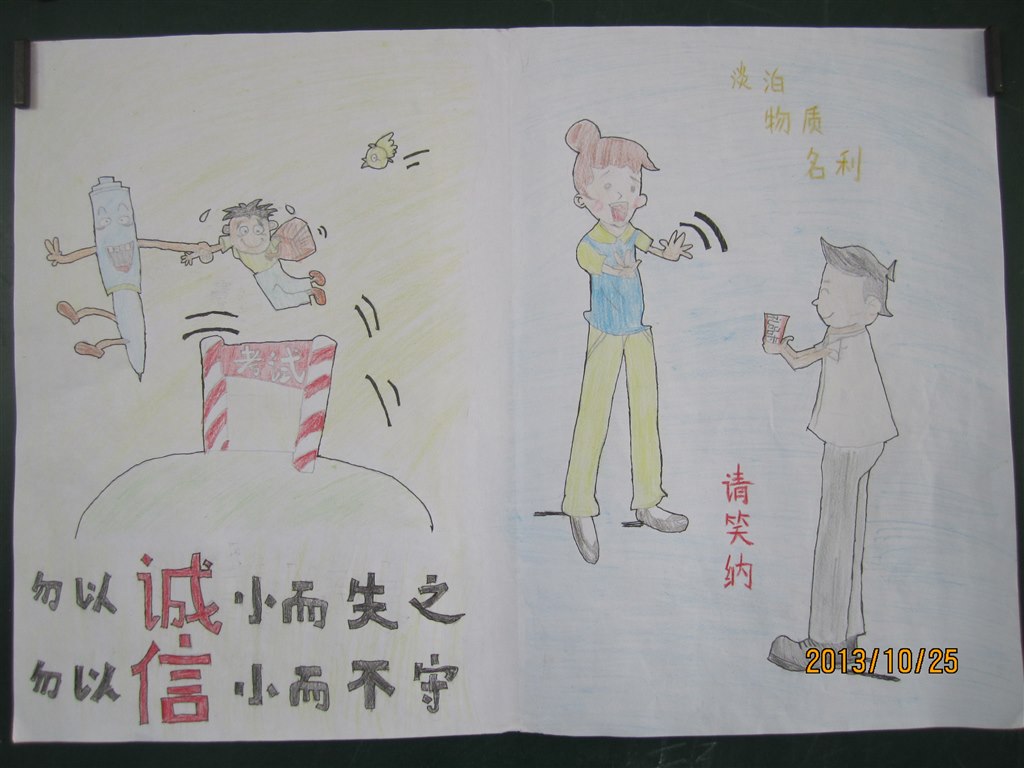 考试
勿以诚小而失之
勿以信小而不守
淡泊
物质
名利
请笑纳
2013/10/25